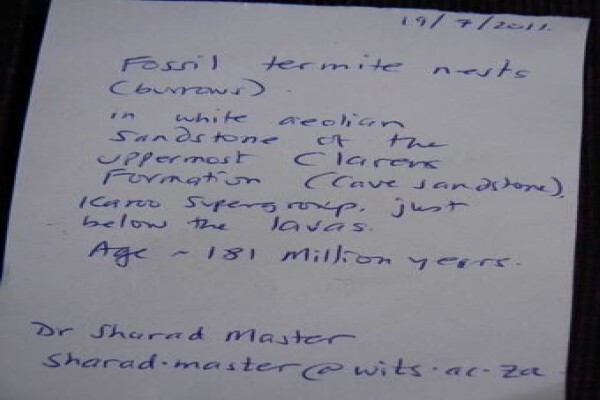 19/7/2011.
Fossil termite nests
(burrows).
in white aeolian
Sandstone of the
uppermost Clarens
Formation (Cave sandstone),
Karoo Supergroup, just
below the lavas.
Age ~ 181 Million years.
Dr Sharad Master
Sharad.master@wits.ac.za